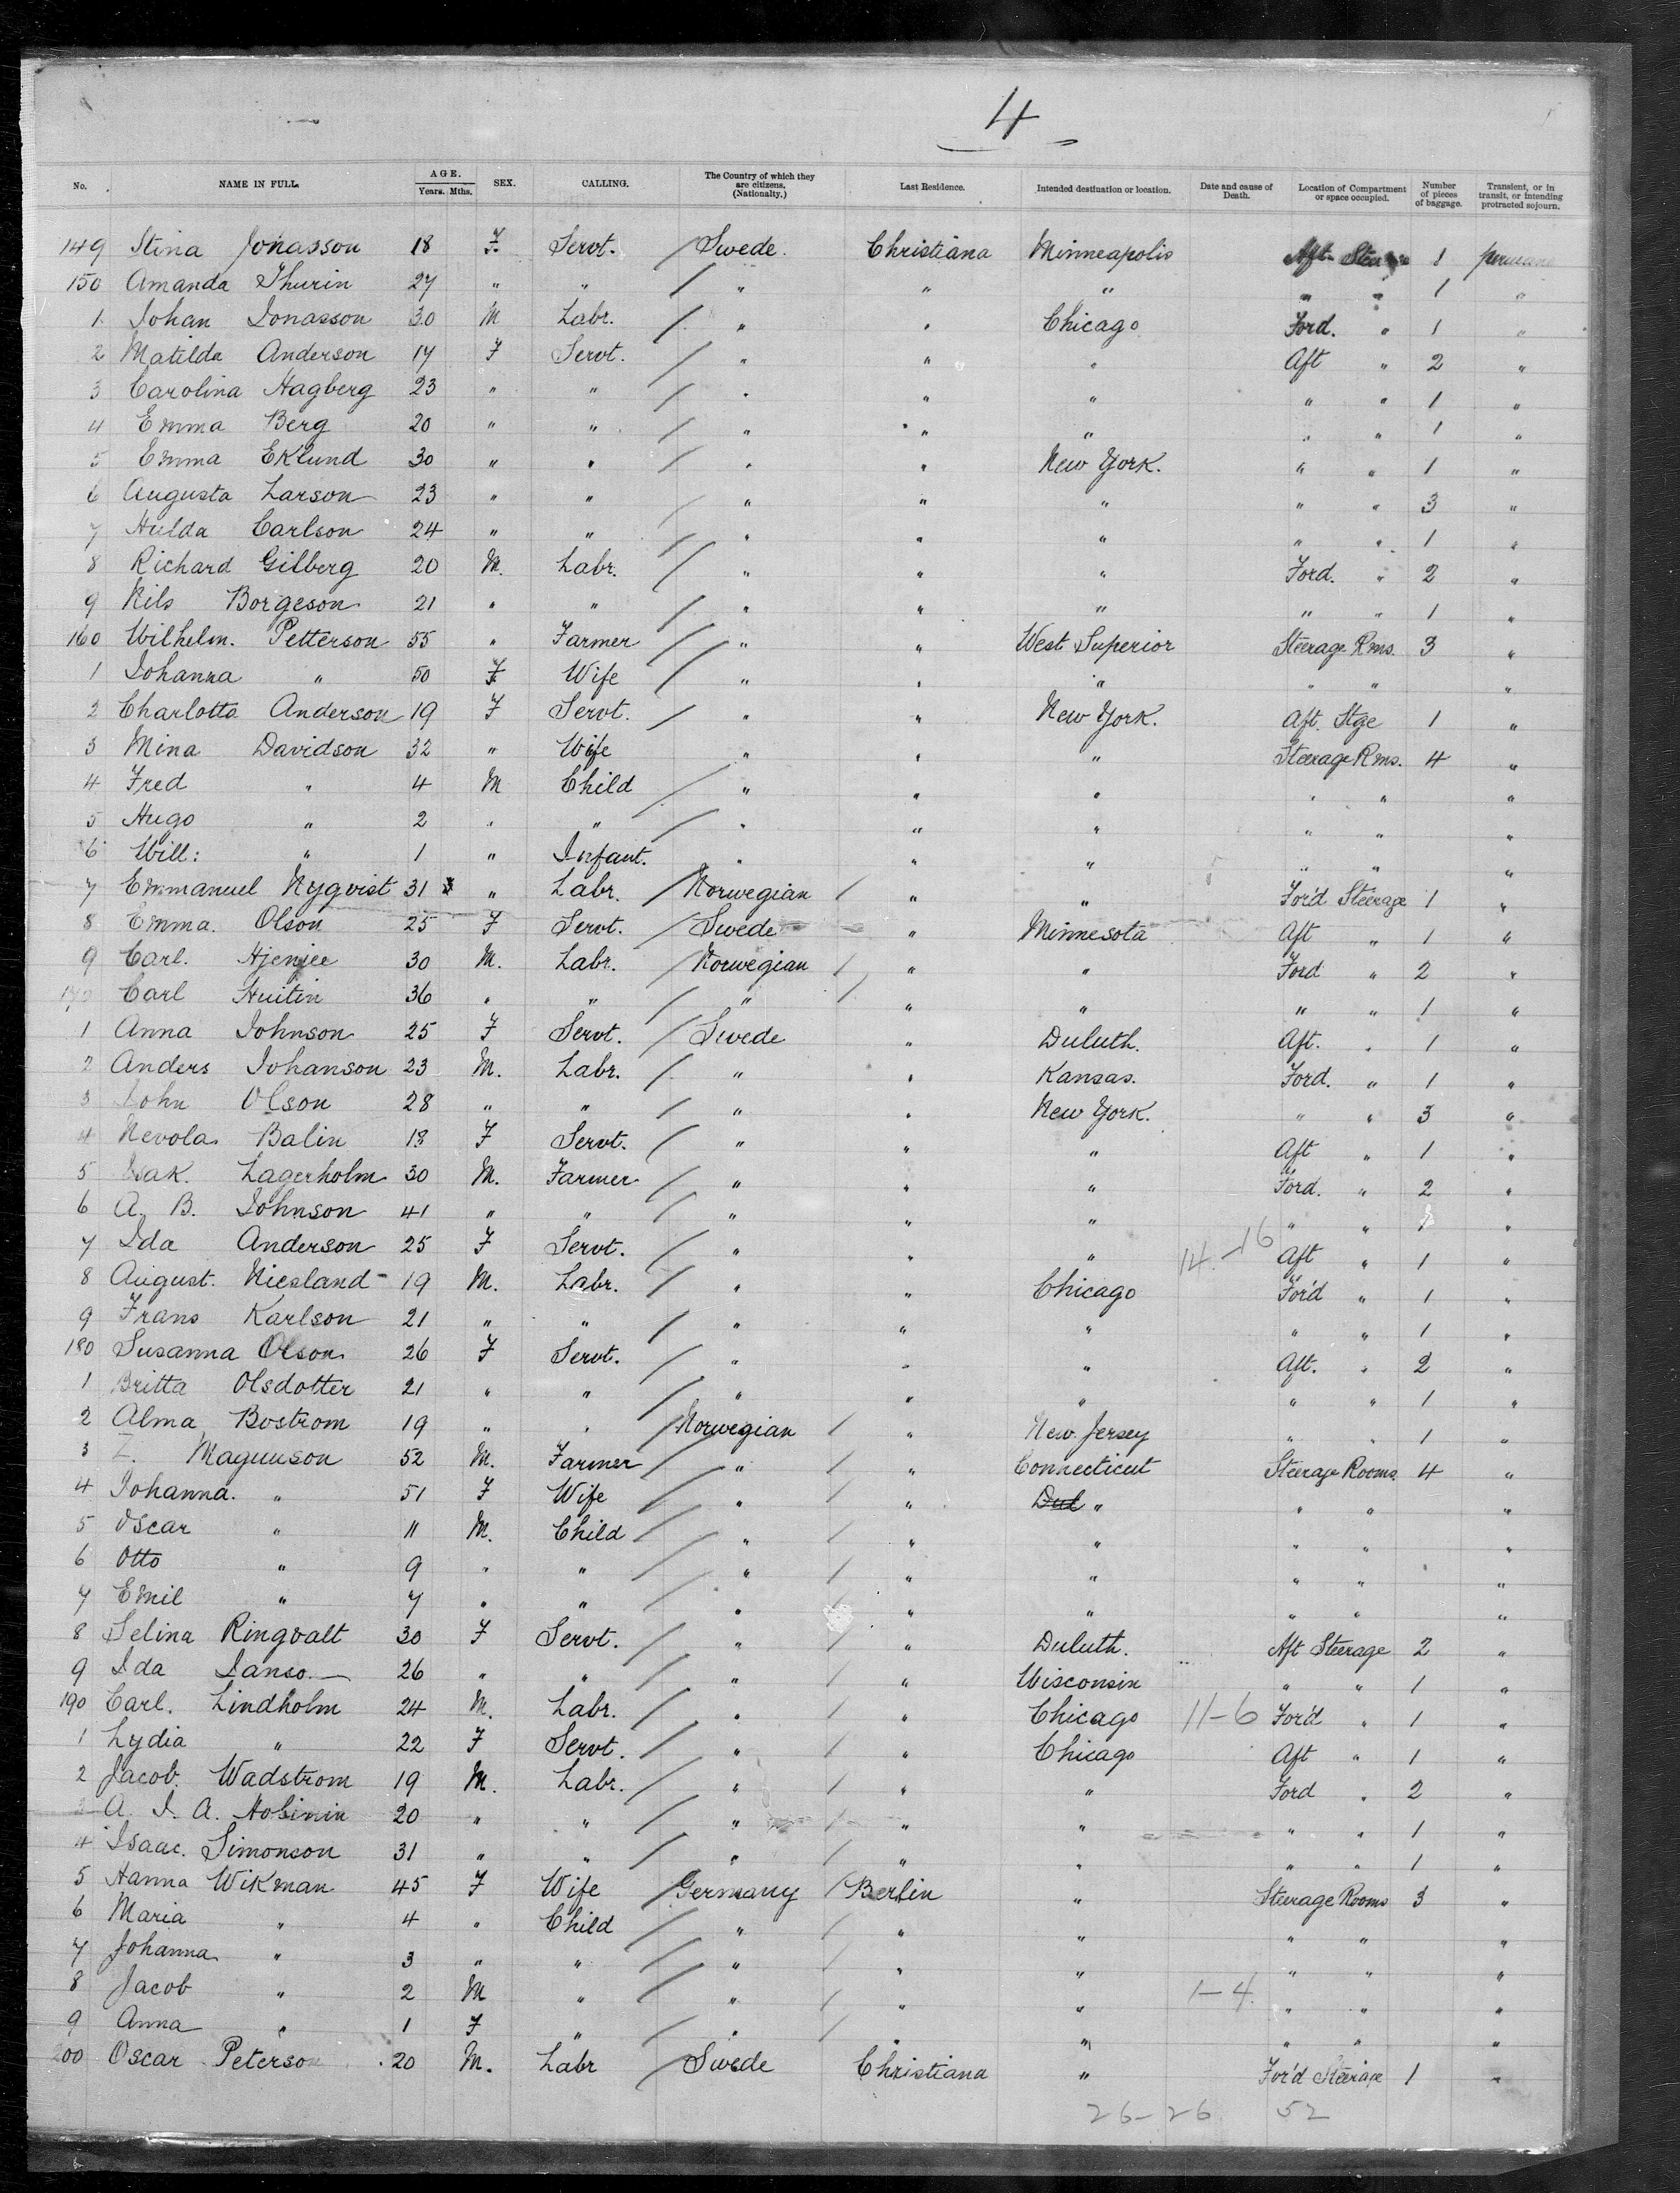 4
No. NAME IN FULL. AGE. Years. Mths. SEX. CALLING. The Country of which they are citizens. (Nationality.) Last Residence. Intended destination or location. Date and cause of Death. Location of Compartment or space occupied. Number of pieces of baggage. Transient, or in transit, or intending protracted sojourn.
149 Stina Jonasson 18 F. Servt. / Swede. Christiana Minneapolis Aft. 1
150 Amanda Thurin 27 " " / " " " " " 1 "
1 Johan Jonasson 30 M Labr. / " " Chicago Ford. " 1 "
2 Matilda Anderson 17 F Servt. / " " " Aft " 2 "
3 Carolina Hagberg 23 " " / " " " " " 1 "
4 Emma Berg 20 " " / " " " " " 1 "
5 Emma Eklund 30 " " / " " New York. " " 1 "
6 Augusta Larson 23 " " / " " " " " 3 "
7 Hulda Carlson 24 " " / " " " " " 1 "
8 Richard Gilberg 20 M. Labr. / " " " Ford. " 2 "
9 Nils Borgeson 21 " " / " " " " " 1 "
160 Wilhelm. Petterson 55 " Farmer / " " West Superior Steerage Rms. 3 "
1 Johanna " 50 F Wife / " " " " " "
2 Charlotta Anderson 19 F Servt. / " " New York. Aft. Stge 1 "
3 Mina Davidson 32 " Wife " " " Steerage Rms. 4 "
4 Fred " 4 M Child / " " " " " "
5 Hugo " 2 " " / " " " " " "
6 Will: " 1 " Infant. " " " " " "
7 Emmanuel Nyqvist 31 " Labr. / Norwegian / " " For'd Steerage 1 "
8 Emma. Olson 25 F Servt. / Swede " Minnesota Aft " 1 "
9 Carl. 30 M. Labr. / Norwegian / " " Ford " 2 "
170 Carl Huitin 36 " " / " / " " " " 1 "
1 Anna Johnson 25 F Servt. / Swede " Duluth. Aft. " 1 "
2 Anders Johanson 23 M. Labr. / " " Kansas. Ford. " 1 "
3 John Olson 28 " " / " " New York. " " 3 "
4 Nevola Balin 18 F Servt. / " " " Aft " 1 "
5 Isak. Lagerholm 30 M. Farmer / " " " Ford. " 2 "
6 A. B. Johnson 41 " " / " " " " " 1 "
7 Ida Anderson 25 F Servt. / " " " 14-16 Aft " 1 "
8 August. Niesland 19 M. Labr. / " " Chicago For'd " 1 "
9 Frans Karlson 21 " " / " " " " " 1 "
180 Susanna Olson 26 F Servt. / " " " Aft. " 2 "
1 Britta Olsdotter 21 " " / " " " " " 1 "
2 Alma Bostrom 19 " " / Norwegian / " New Jersey " " 1 "
3 Magnuson 52 M. Farmer / " / " Connecticut Steerage Rooms 4 "
4 Johanna. " 51 F Wife / " / " Dul " " " "
5 Oscar " 11 M. Child / " / " " " " "
6 Otto " 9 " " / " / " " " " "
7 Emil " 7 " " / " " " " " "
8 Selina Ringvalt 30 F Servt. / " / " Duluth. Aft Steerage 2 "
9 Ida Janso 26 " " / " / " Wisconsin " " 1 "
190 Carl. Lindholm 24 M. Labr. / " / " Chicago 11-6 For'd " 1 "
1 Lydia " 22 F Servt. / " / " Chicago Aft " 1 "
2 Jacob. Wadstrom 19 M. Labr. / " / " " Ford " 2 "
3 A. J. A. 20 " " / " / " " " " 1 "
4 Isaac. Simonson 31 " " / " / " " " " 1 "
5 Hanna Wikman 45 F Wife / Germany / Berlin " Steerage Rooms 3 "
6 Maria " 4 " Child / " / " " " " "
7 Johanna " 3 " " / " / " " " " "
8 Jacob " 2 M " / " / " " 1-4 " " "
9 Anna " 1 F " / " / " " " " "
200 Oscar Peterson 20 M. Labr / Swede Christiana " For'd Steerage 1 "
26-26 52